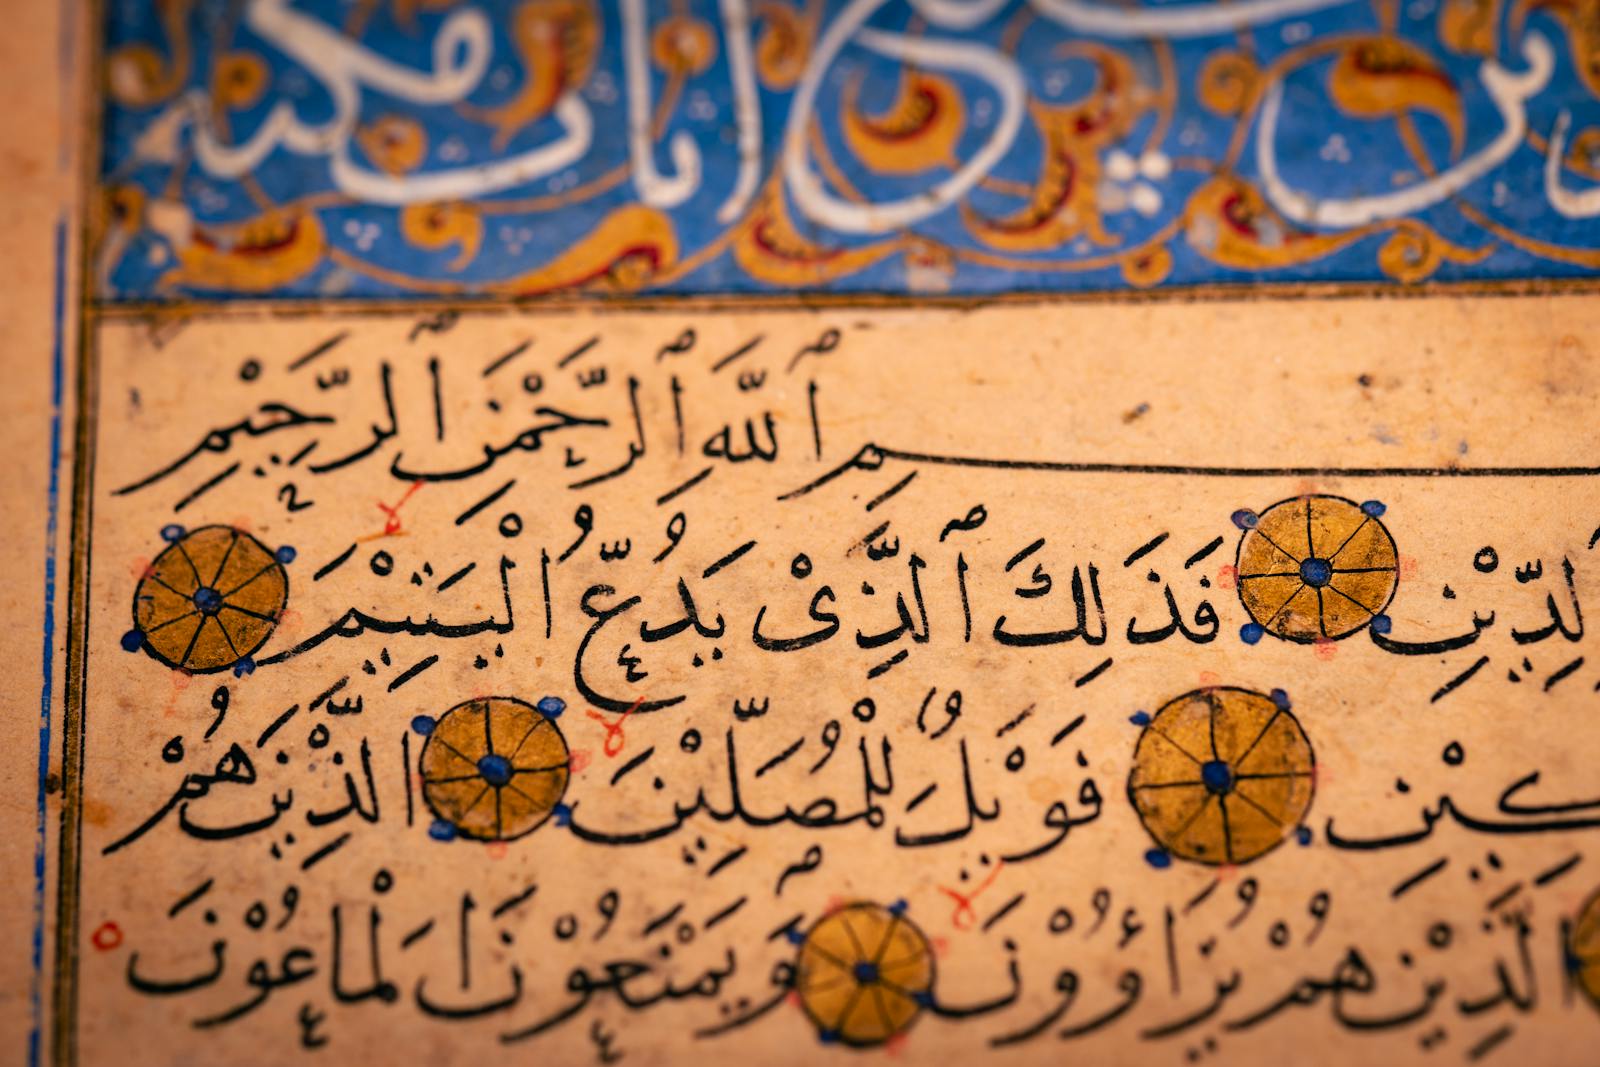 آيات مكية
بسم ٱلله ٱلرَّحْمٰنِ ٱلرَّحِيْمِ
لدِّيْنِ فَذَٰلِكَ ٱلَّذِىْ يَدُعُّ الْيَتِيْمَ
كِيْنِ فَوَيْلٌ لِّلْمُصَلِّيْنَ الَّذِيْنَ هُمْ
الَّذِيْنَ هُمْ يُرَاؤُوْنَ وَيَمْنَعُوْنَ الْمَاعُوْنَ